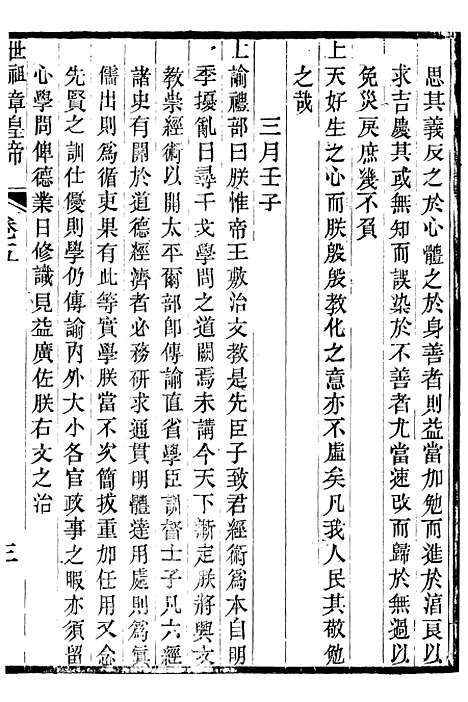 思其義反之於心體之於身善者則益當加勉而進於滛良以
求吉慶其或無知而誤染於不善者尤當速改而歸於無過以
免災戾庶幾不負
上天好生之心而朕殷殷教化之意亦不虛矣凡我人民其敬勉
之哉
三月壬子
上諭禮部曰朕惟帝王敷治文教是先臣子致君經術為本自明
季擾亂日尋干戈學問之道闕焉未講今天下漸定朕將興文
教崇經術以開太平爾部即傳諭直省學臣訓督士子凡六經
諸史有關於道德經濟者必務研求通貫明體達用處則為真
儒出則為循吏果有此等實學朕當不次簡拔重加任用又念
先賢之訓仕優則學仍傳諭內外大小各官政事之暇亦須留
心學問俾德業日修識見益廣佐朕右文之治
世祖章皇帝 卷五 三